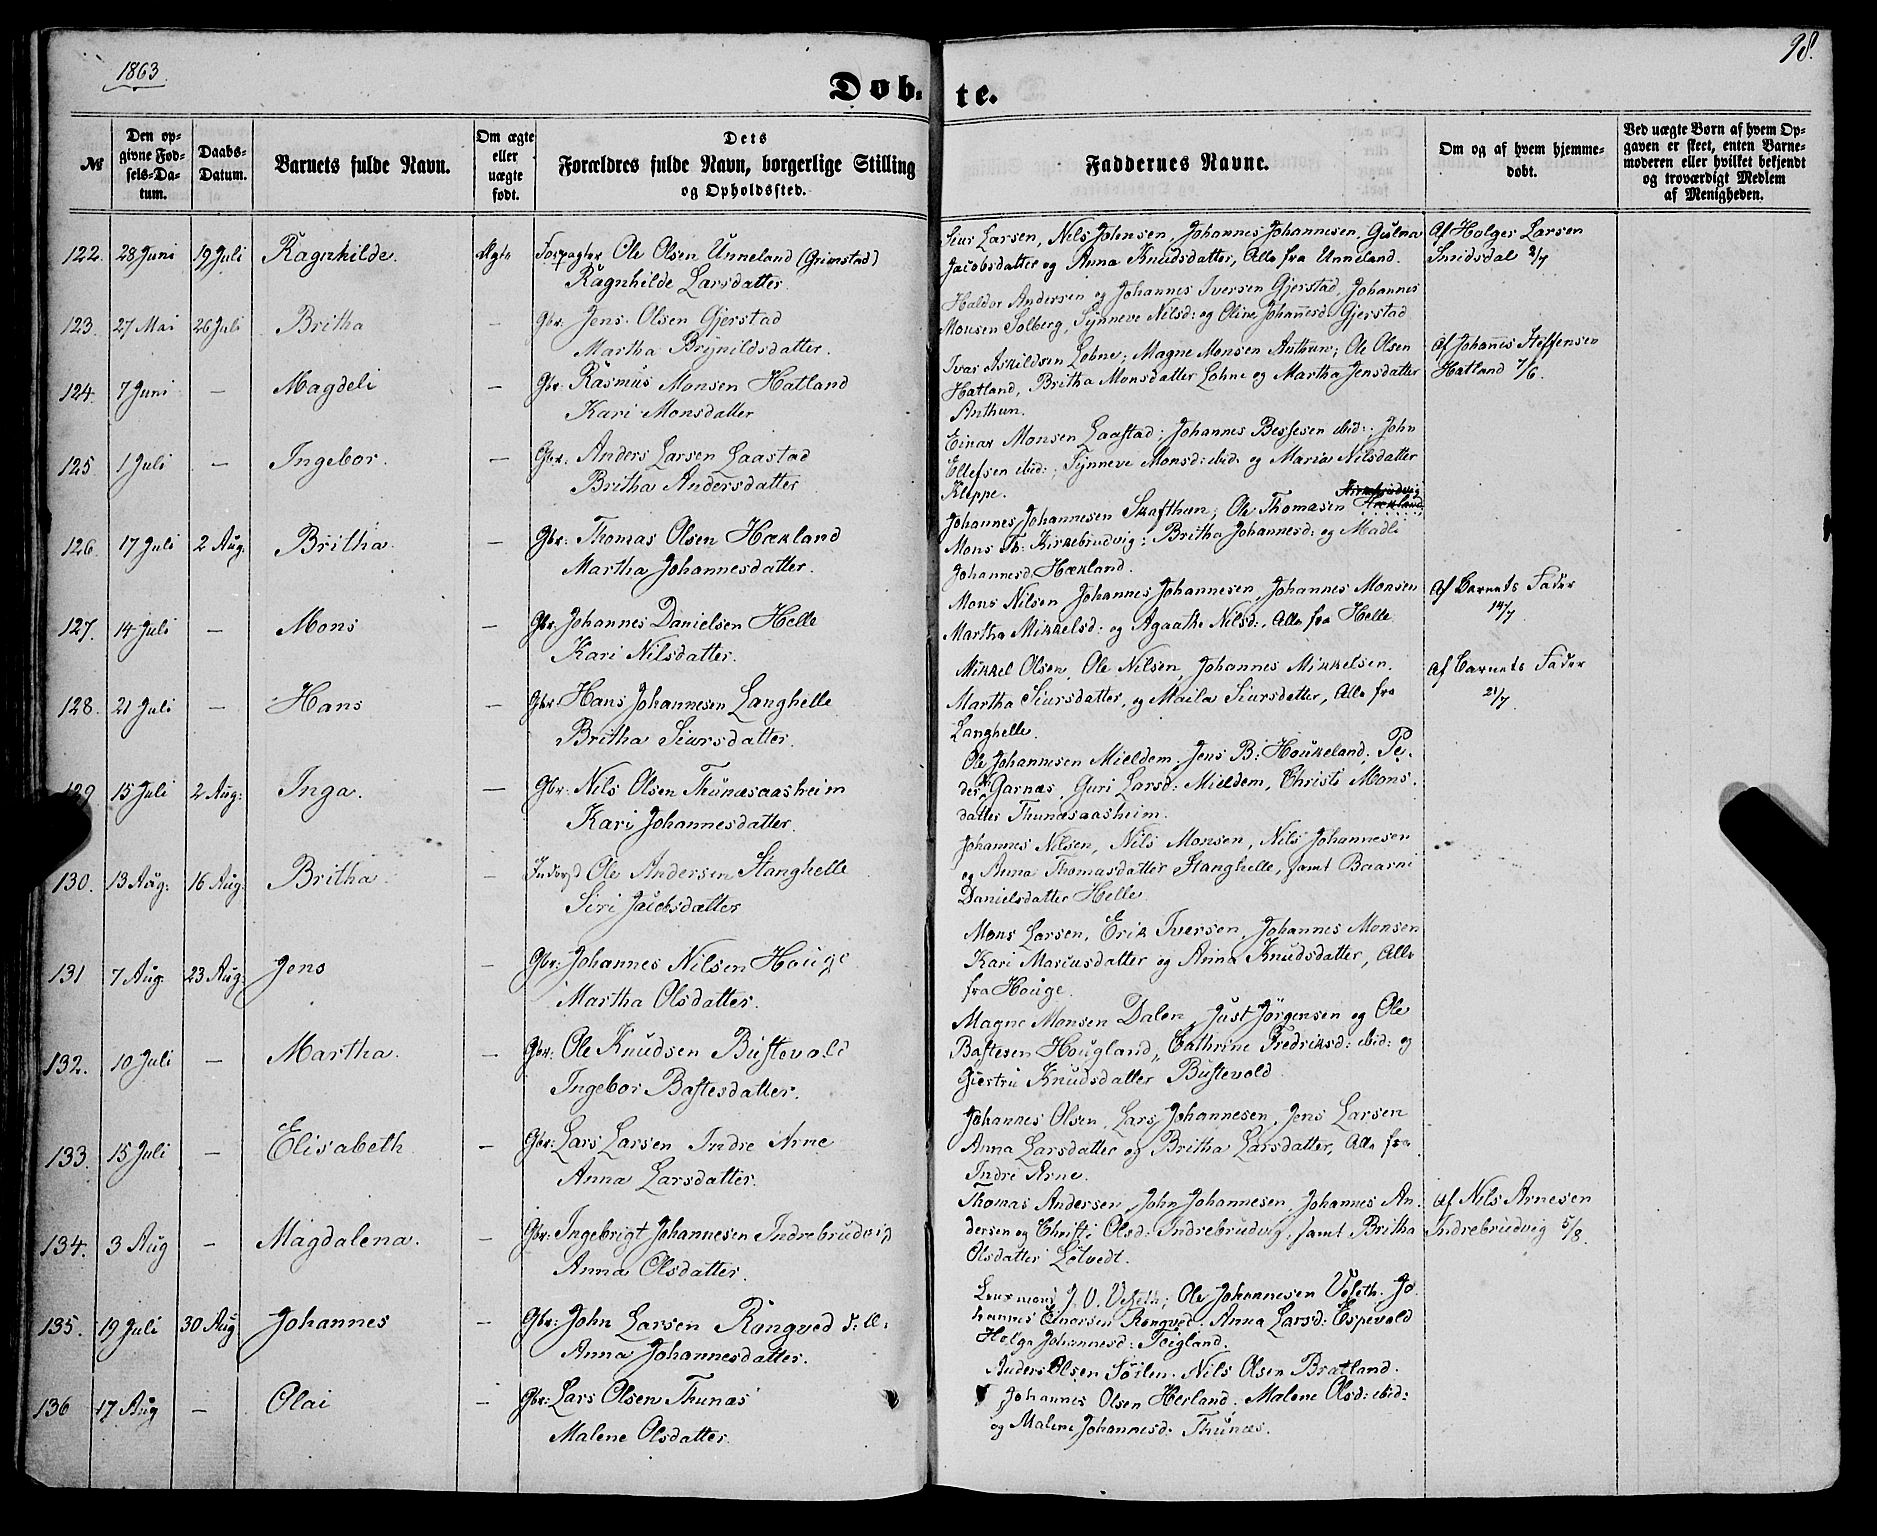 1863
98.
Døb- te.
№
Den opgivne Fødsels-Datum.
Daabs-Datum.
Barnets fulde Navn.
Om ægte eller uægte født.
Dets Forældres fulde Navn, borgerlige Stilling og Opholdssted.
Faddernes Navne.
Om og af hvem hjemmedøbt.
Ved uægte Børn af hvem Opgaven er skeet, enten Barnemoderen eller hvilket bekjendt og troværdigt Medlem af Menigheden.
122. 28 Juni 19 Juli Ragnhilde. Ægte Forpagter Ole Olsen Unneland (Grimstad)
Ragnhilde Larsdatter.
Siur Larsen, Nils Johnsen, Johannes Johannesen, Gulna
Jacobsdatter og Anna Knudsdatter, Alle fra Unneland.
Af Holger Larsen
Smidsdal 2/7
123. 27 Mai 26 Juli Britha — Gbr. Jens Olsen Gjerstad
Martha Brynildsdatter.
Haldor Andersen og Johannes Iversen Gjerstad, Johannes
Monsen Solberg, Synneve Nilsd: og Oline Johannesd Gjerstad
124. 7 Juni — Magdeli — Gbr. Rasmus Monsen Hatland
Kari Monsdatter
Ivar Askildsen Lohne; Magne Monsen Anthun; Ole Olsen
Hatland, Britha Monsdatter Lohne og Martha Jensdatter
Anthun.
Af Johannes Steffensen
Hatland 7/6.
125. 1 Juli — Ingebor. — Gbr: Anders Larsen Laastad
Britha Andersdatter
Einar Monsen Laastad; Johannes Bessesen ibid:; John
Ellefsen ibid:; Synneve Monsd: ibid: og Maria Nilsdatter
Kleppe.
126. 17 Juli 2 Aug. Britha. — Gbr: Thomas Olsen Hækland
Martha Johannesdatter.
Johannes Johannesen Skafthun; Ole Thomasen Hækland,
Mons Th: Kirkebrudvig; Britha Johannesd: og Madli
Johannesd. Hækland.
127. 14 Juli — Mons — Gbr. Johannes Danielsen Helle
Kari Nilsdatter.
Mons Nilsen, Johannes Johannesen, Johannes Monsen
Martha Mikkelsd: og Agaathe Nilsd:, Alle fra Helle.
Af Barnets Fader
14/7.
128. 21 Juli — Hans — Gbr Hans Johannesen Langhelle
Britha Siursdatter.
Mikkel Olsen, Ole Nilsen, Johannes Mikkelsen.
Martha Siursdatter, og Maila Siursdatter, Alle fra
Langhelle.
Af Barnets Fader
21/7.
129 15 Juli 2 Aug: Inga. — Gbr: Nils Olsen Thunæsaasheim
Kari Johannesdatter.
Ole Johannesen Mieldem, Jens B: Houkeland, Pe-
der Garnæs, Guri Larsd: Mieldem, Christi Mons-
datter Thunæsaasheim.
130. 13 Aug: 16 Aug: Britha. — Inderst Ole Andersen Stanghelle
Siri Jacobsdatter
Johannes Nilsen, Nils Monsen, Nils Johannesen
og Anna Thomasdatter Stanghelle, samt Baarni
Danielsdatter Helle.
131 7 Aug: 23 Aug: Jens — Gbr: Johannes Nilsen Houge
Martha Olsdatter.
Mons Larsen, Erik Iversen, Johannes Monsen
Kari Marcusdatter og Anna Knudsdatter, Alle
fra Houge.
132. 10 Juli — Martha. — Gbr: Ole Knudsen Bustevold
Ingebor Bastesdatter.
Magne Monsen Dalen, Just Jørgensen og Ole
Bastesen Hougland, Cathrine Fredriksd: ibid: og
Giertru Knudsdatter Bustevold
133. 15 Juli — Elisabeth. — Gbr: Lars Larsen Indre Arne
Anna Larsdatter.
Johannes Olsen, Lars Johannesen, Jens Larsen
Anna Larsdatter og Britha Larsdatter, Alle fra
Indre Arne.
134. 3 Aug — Magdalena. — Gbr: Ingebrigt Johannesen Indrebrudvig
Anna Olsdatter.
Thomas Andersen, John Johannesen, Johannes An-
dersen og Christi Olsd: Indrebrudvig, samt Britha
Olsdatter Løtvedt.
Af Nils Arnesen
Indrebrudvig 5/8.
135. 19 Juli 30 Aug Johannes — Gbr: John Larsen Rongved
Anna Johannesdatter.
Lensmand J. O. Veseth; Ole Johannesen Veseth. Jo-
hannes Einarsen Rongved. Anna Larsd: Espevold
Helga Johannesd: Toigland.
136 17 Aug — Olai — Gbr: Lars Olsen Thunæs
Malene Olsdatter
Anders Olsen Søilen. Nils Olsen Bratland.
Johannes Olsen Herland. Malene Olsd: ibid:
og Malene Johannesd: Thunæs.